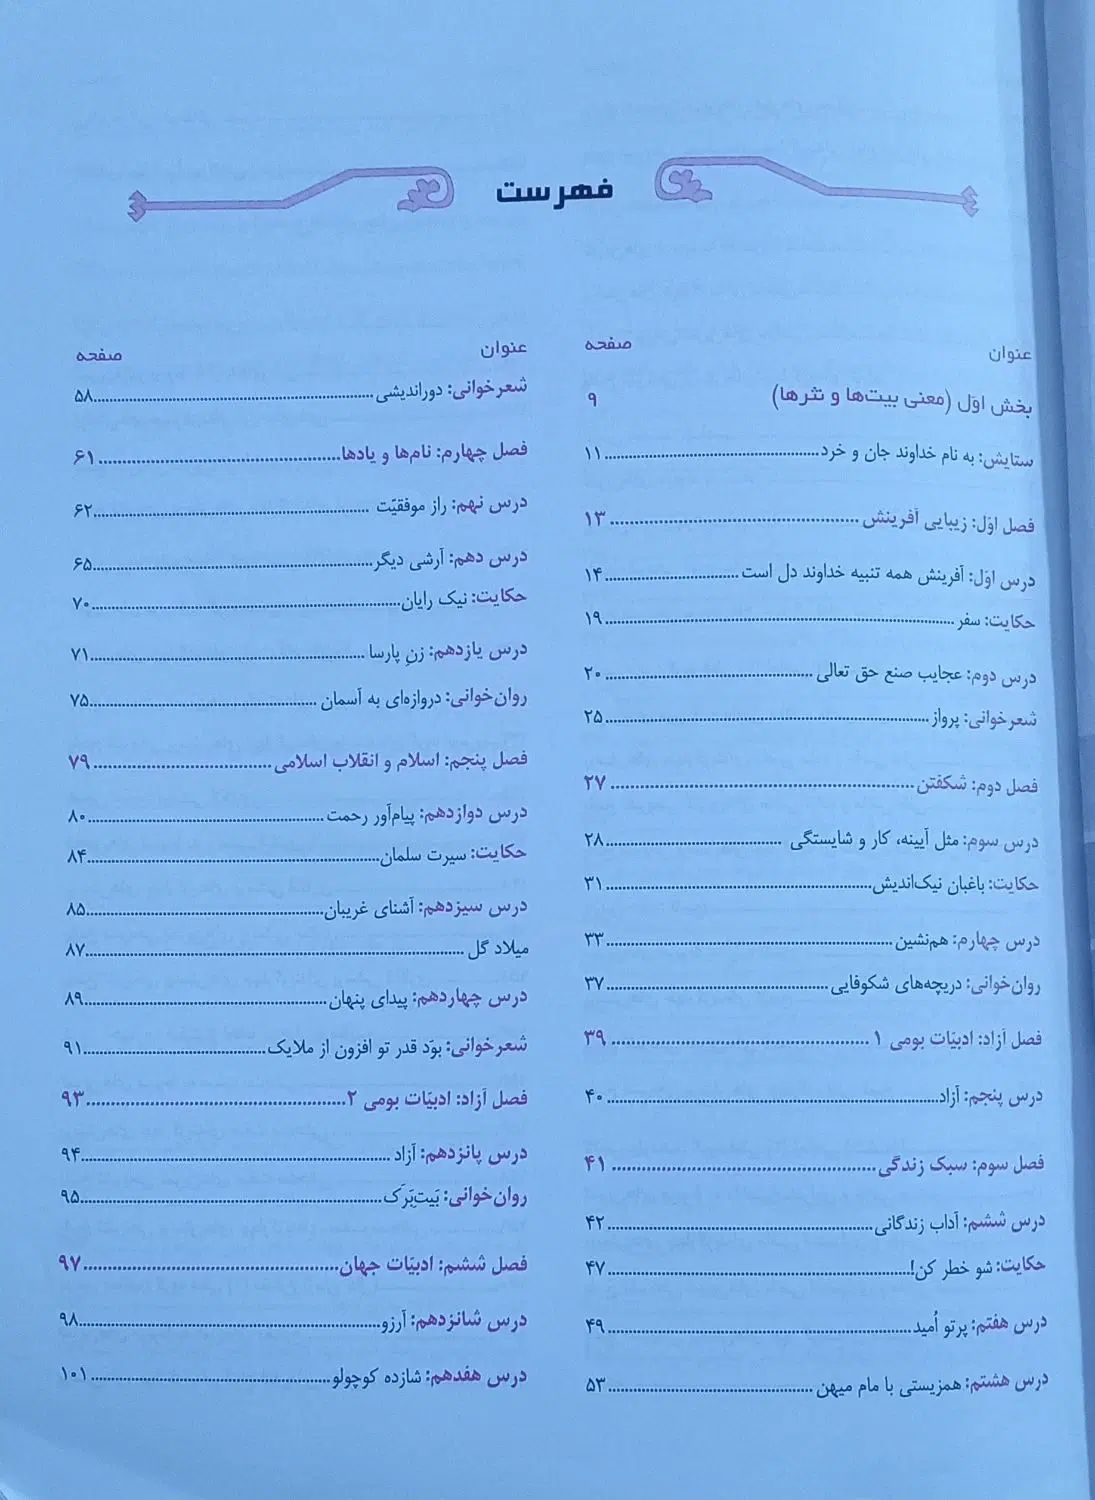 فهرست
عنوان صفحه
بخش اوّل (معنی بیت‌ها و نثرها) ۹
ستایش: به نام خداوند جان و خرد ۱۱
فصل اوّل: زیبایی آفرینش ۱۳
درس اوّل: آفرینش همه تنبیه خداوند دل است ۱۴
حکایت: سفر ۱۹
درس دوم: عجایب صنع حق تعالی ۲۰
شعرخوانی: پرواز ۲۵
فصل دوم: شکفتن ۲۷
درس سوم: مثل آیینه، کار و شایستگی ۲۸
حکایت: باغبان نیک‌اندیش ۳۱
درس چهارم: هم‌نشین ۳۳
روان‌خوانی: دریچه‌های شکوفایی ۳۷
فصل آزاد: ادبیّات بومی ۱ ۳۹
درس پنجم: آزاد ۴۰
فصل سوم: سبک زندگی ۴۱
درس ششم: آداب زندگانی ۴۲
حکایت: شو خطر کن! ۴۷
درس هفتم: پرتو اُمید ۴۹
درس هشتم: همزیستی با مام میهن ۵۳
عنوان صفحه
شعرخوانی: دوراندیشی ۵۸
فصل چهارم: نام‌ها و یادها ۶۱
درس نهم: راز موفقیّت ۶۲
درس دهم: آرشی دیگر ۶۵
حکایت: نیک رایان ۷۰
درس یازدهم: زنِ پارسا ۷۱
روان‌خوانی: دروازه‌ای به آسمان ۷۵
فصل پنجم: اسلام و انقلاب اسلامی ۷۹
درس دوازدهم: پیام‌آور رحمت ۸۰
حکایت: سیرت سلمان ۸۴
درس سیزدهم: آشنای غریبان ۸۵
میلاد گل ۸۷
درس چهاردهم: پیدای پنهان ۸۹
شعرخوانی: بوَد قدر تو افزون از ملایک ۹۱
فصل آزاد: ادبیّات بومی ۲ ۹۳
درس پانزدهم: آزاد ۹۴
روان‌خوانی: بَیت‌ِبَرَک ۹۵
فصل ششم: ادبیّات جهان ۹۷
درس شانزدهم: آرزو ۹۸
درس هفدهم: شازده کوچولو ۱۰۱